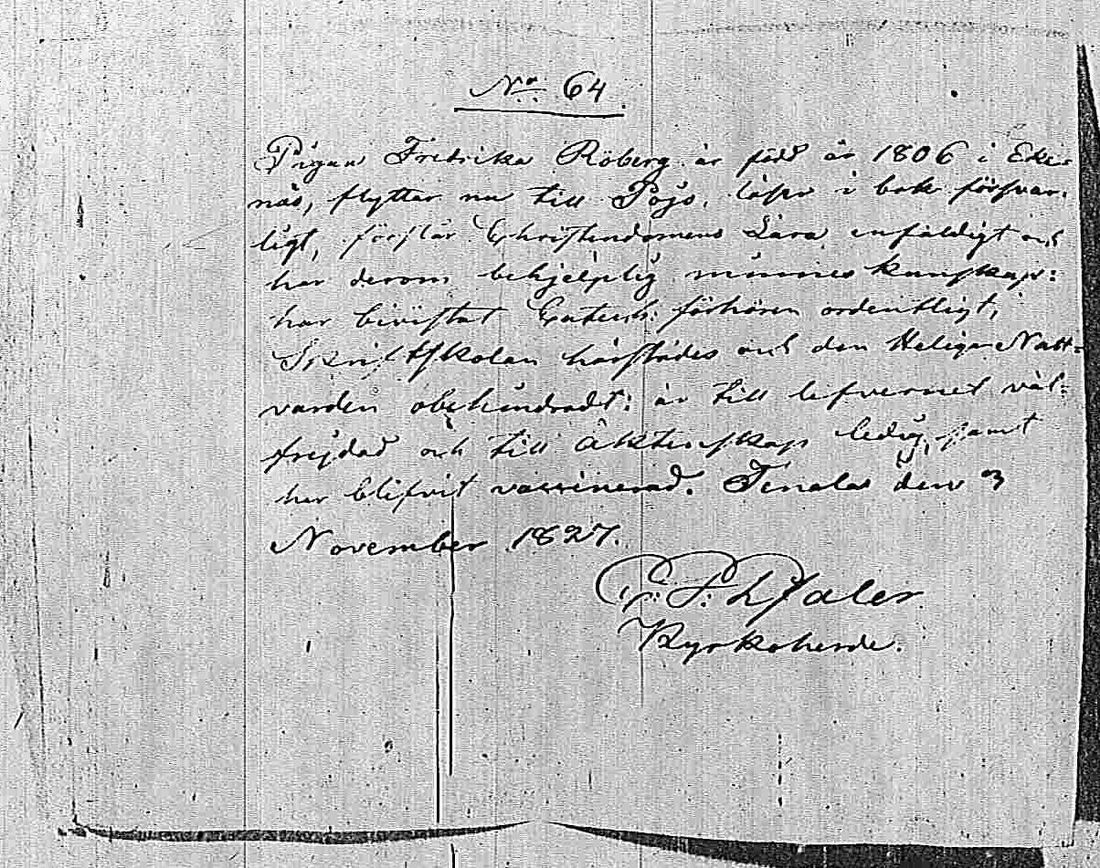 No 64.
Pigan Fredrika Röberg är född år 1806 i Eke-
näs, flyttar nu till Pojo, läser i bok försvar-
ligt, förstår Christendomens Lära enfaldigt och
har derom behjelplig minnes kunskap:
har bivistat Catech: förhören ordentligt,
Skriftskolan härstädes och den Heliga Natt-
varden obehindradt: är till lefvernet väl-
frejdad och till Äktenskap ledig, samt
har blifvit vaccinerad. Tenala den 3
November 1827.
Pfaler
Kyrkoherde.